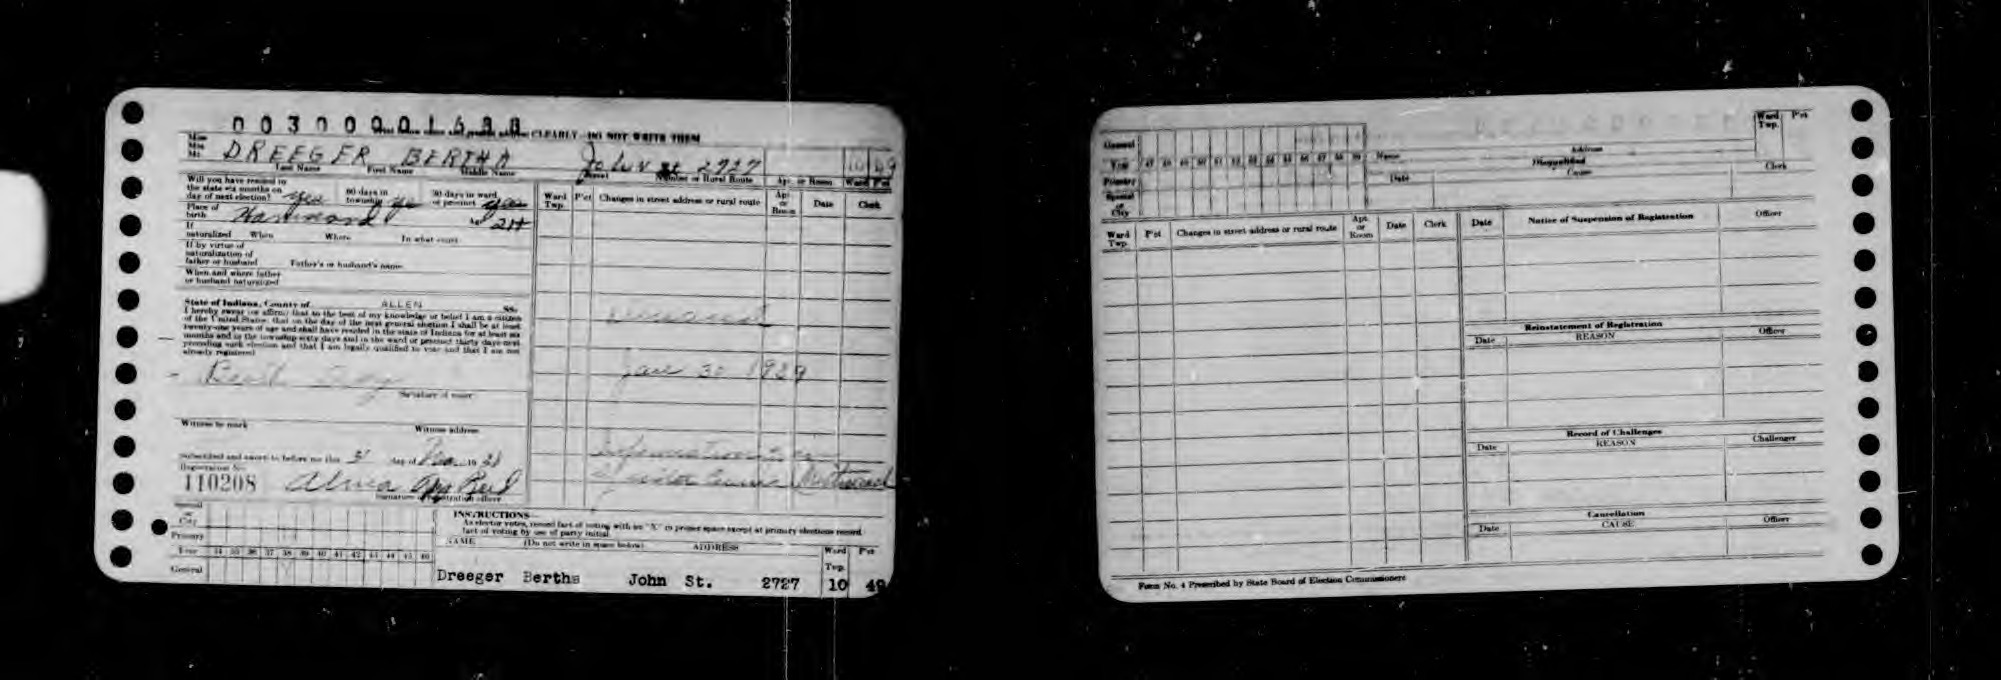 CLEARLY—DO NOT WRITE THEM
Miss
Mrs.
Mr. DREEGER BERTHA John St 2727 10 49
Last Name First Name Middle Name Street Number or Rural Route Apt. or Room Ward Pct
Will you have resided in
the state six months on
day of next election? yes 60 days in township yes 30 days in ward or precinct yes
Place of birth Age 24
If naturalized When Where In what court
If by virtue of
naturalization of
father or husband Father's or husband's name
When and where father
or husband naturalized
Ward Twp. Pct Changes in street address or rural route Apt. or Room Date Clerk
State of Indiana, County of ALLEN SS:
I hereby swear (or affirm) that to the best of my knowledge or belief I am a citizen
of the United States; that on the day of the next general election I shall be at least
twenty-one years of age and shall have resided in the state of Indiana for at least six
months and in the township sixty days and in the ward or precinct thirty days next
preceding such election and that I am legally qualified to vote and that I am not
already registered
Signature of voter
Jan 30 1939
Witness to mark Witness address
Subscribed and sworn to before me this day of 19 38
Registration No.
110208
Signature of registration officer
INSTRUCTIONS—
As elector votes, record fact of voting with an "X" in proper space except at primary elections record
fact of voting by use of party initial.
NAME (Do not write in space below) ADDRESS Ward Twp. Pct
City
Primary
Year 34 35 36 37 38 39 40 41 42 43 44 45 46
General
Dreeger Bertha John St. 2727 10 49
General
Year 47 48 49 50 51 52 53 54 55 56 57 58 59
Primary
Special or City
Name Address Ward Twp. Pct
Disqualified
Date Cause Clerk
Ward Twp. Pct Changes in street address or rural route Apt. or Room Date Clerk
Date Notice of Suspension of Registration Officer
Reinstatement of Registration
Date REASON Officer
Record of Challenges
Date REASON Challenger
Cancellation
Date CAUSE Officer
Form No. 4 Prescribed by State Board of Election Commissioners